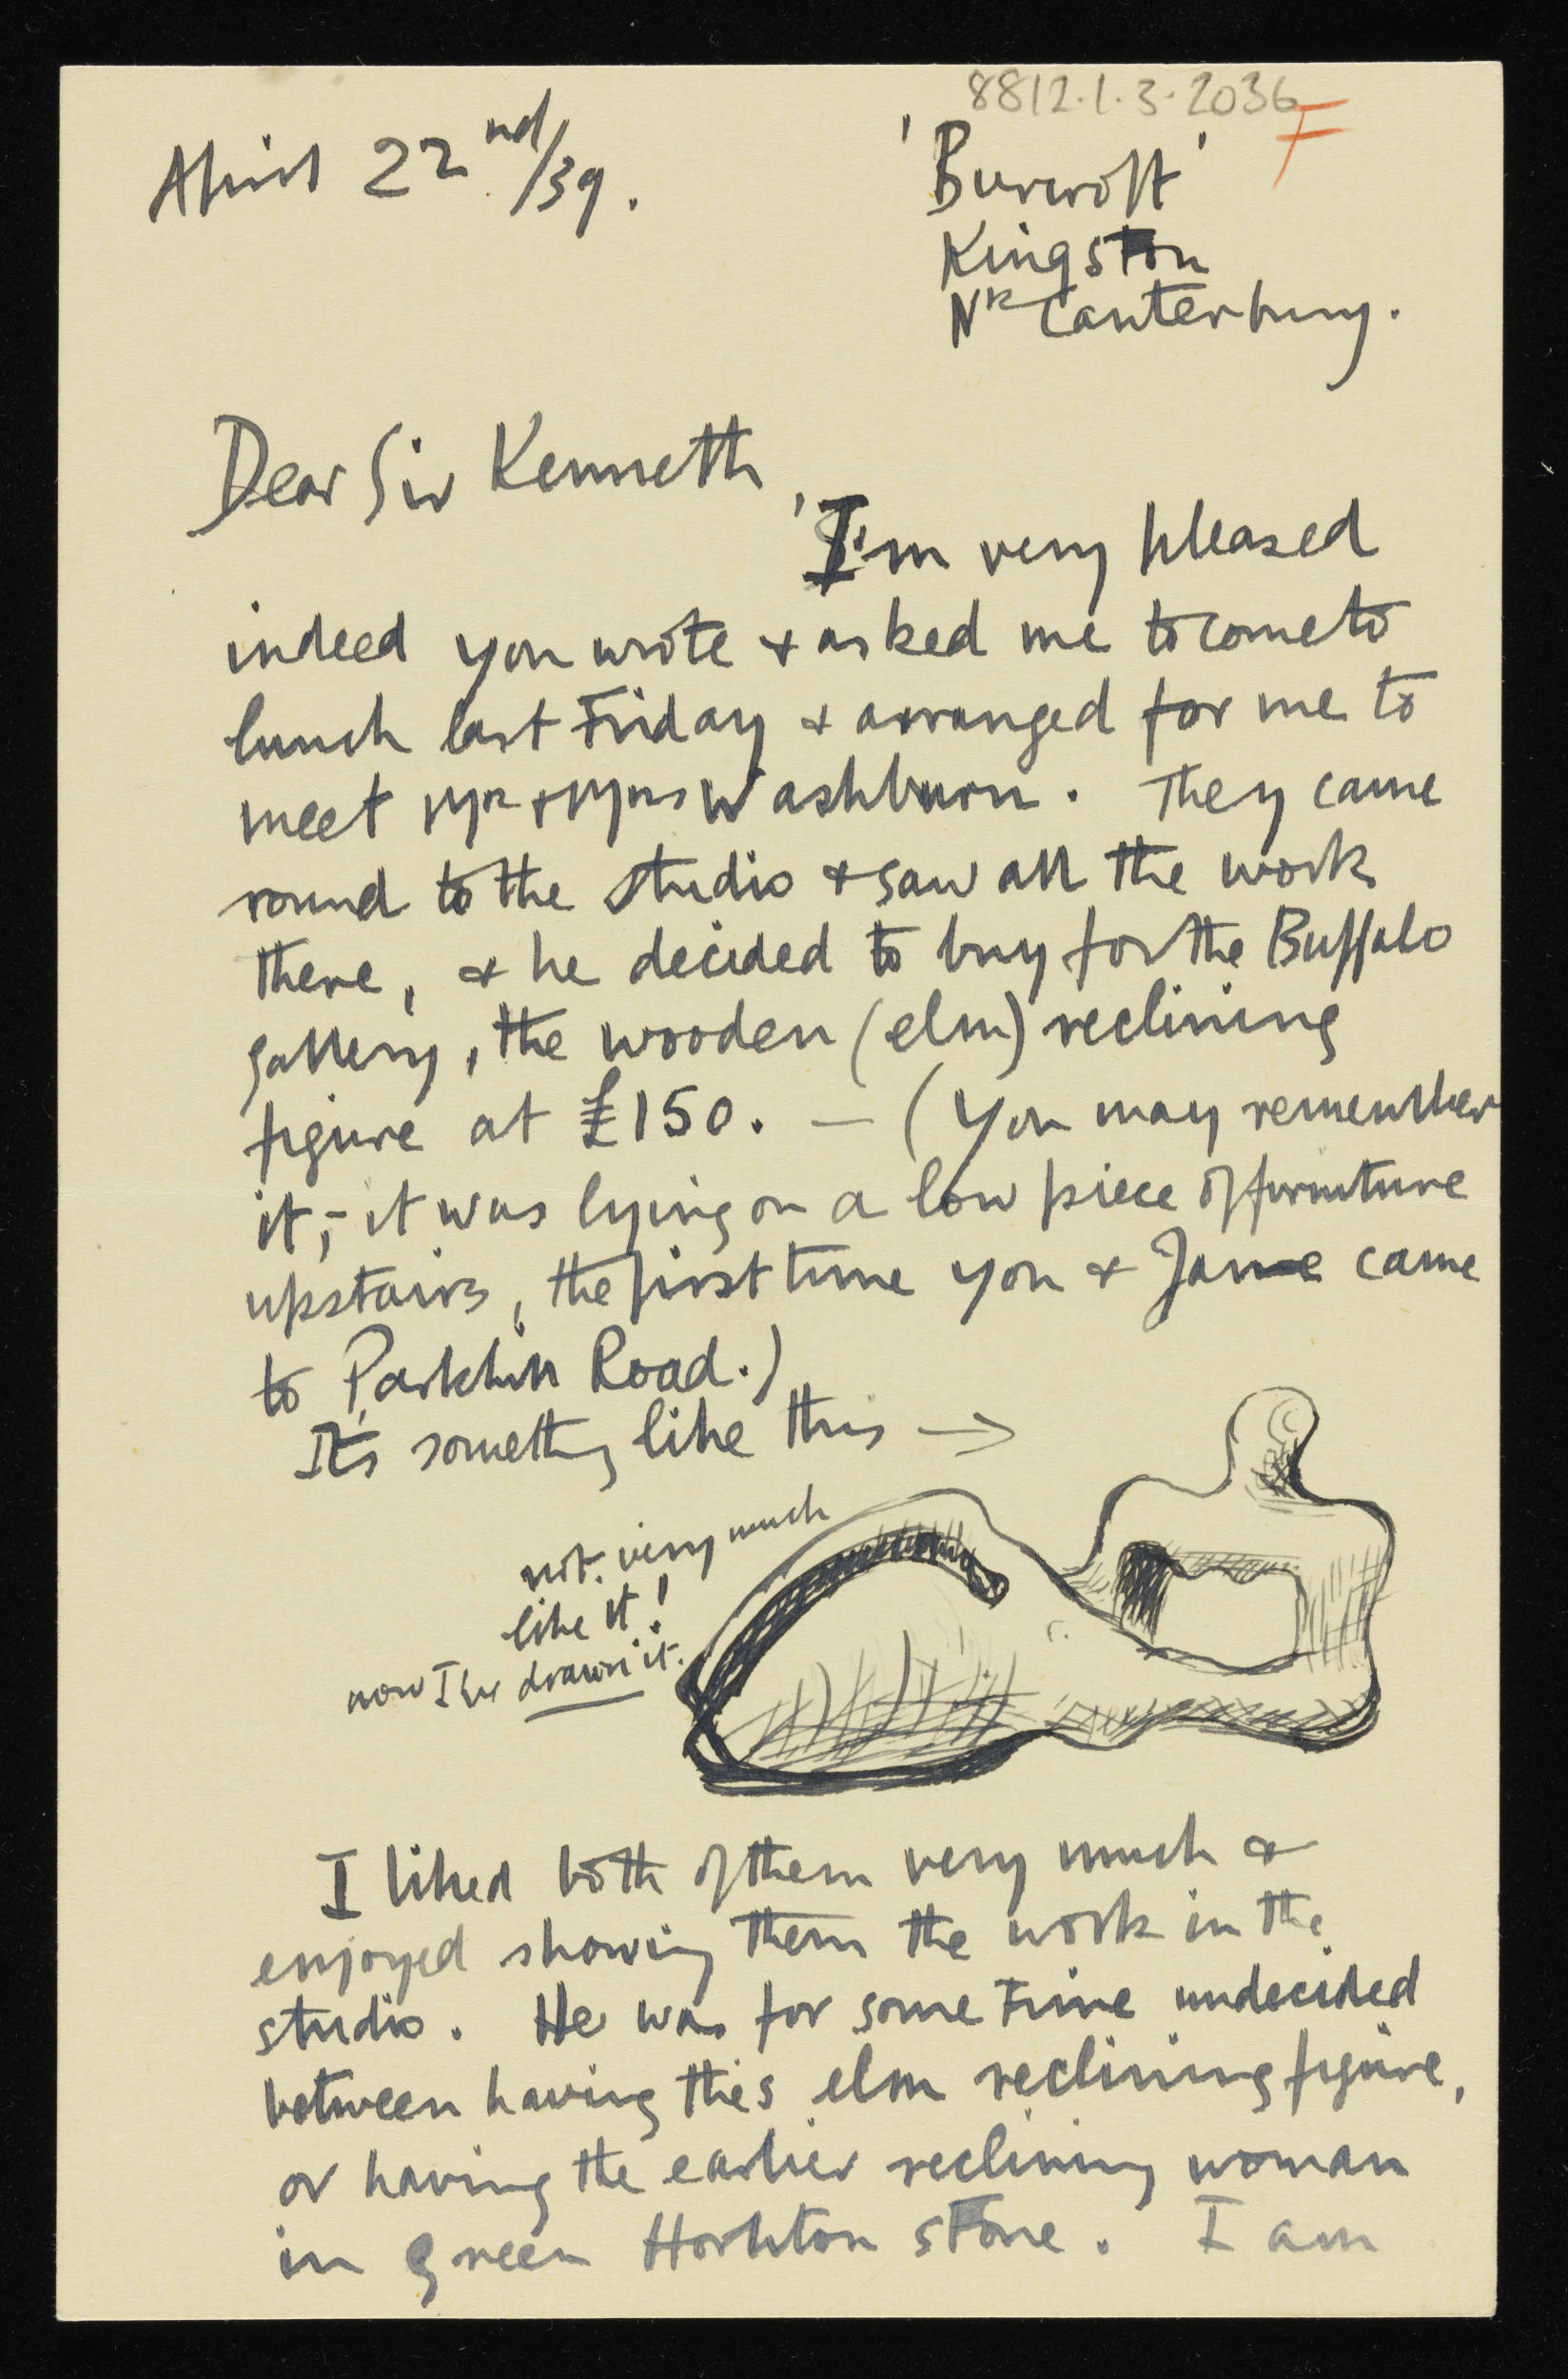 8812.1.3.2036
F
April 22nd/39.
'Burcroft'
Kingston
Nr Canterbury.
Dear Sir Kenneth,
I'm very pleased
indeed you wrote & asked me to come to
lunch last Friday & arranged for me to
meet Mr & Mrs Washburn. They came
round to the studio & saw all the work
there, & he decided to buy for the Buffalo
gallery, the wooden (elm) reclining
figure at £150. — (You may remember
it, - it was lying on a low piece of furniture
upstairs, the first time you & Jane came
to Parkhill Road.)
It's something like this →
not very much
like it!
now I've drawn it.
I liked both of them very much &
enjoyed showing them the work in the
studio. He was for some time undecided
between having this elm reclining figure,
or having the earlier reclining woman
in green Hornton stone. I am